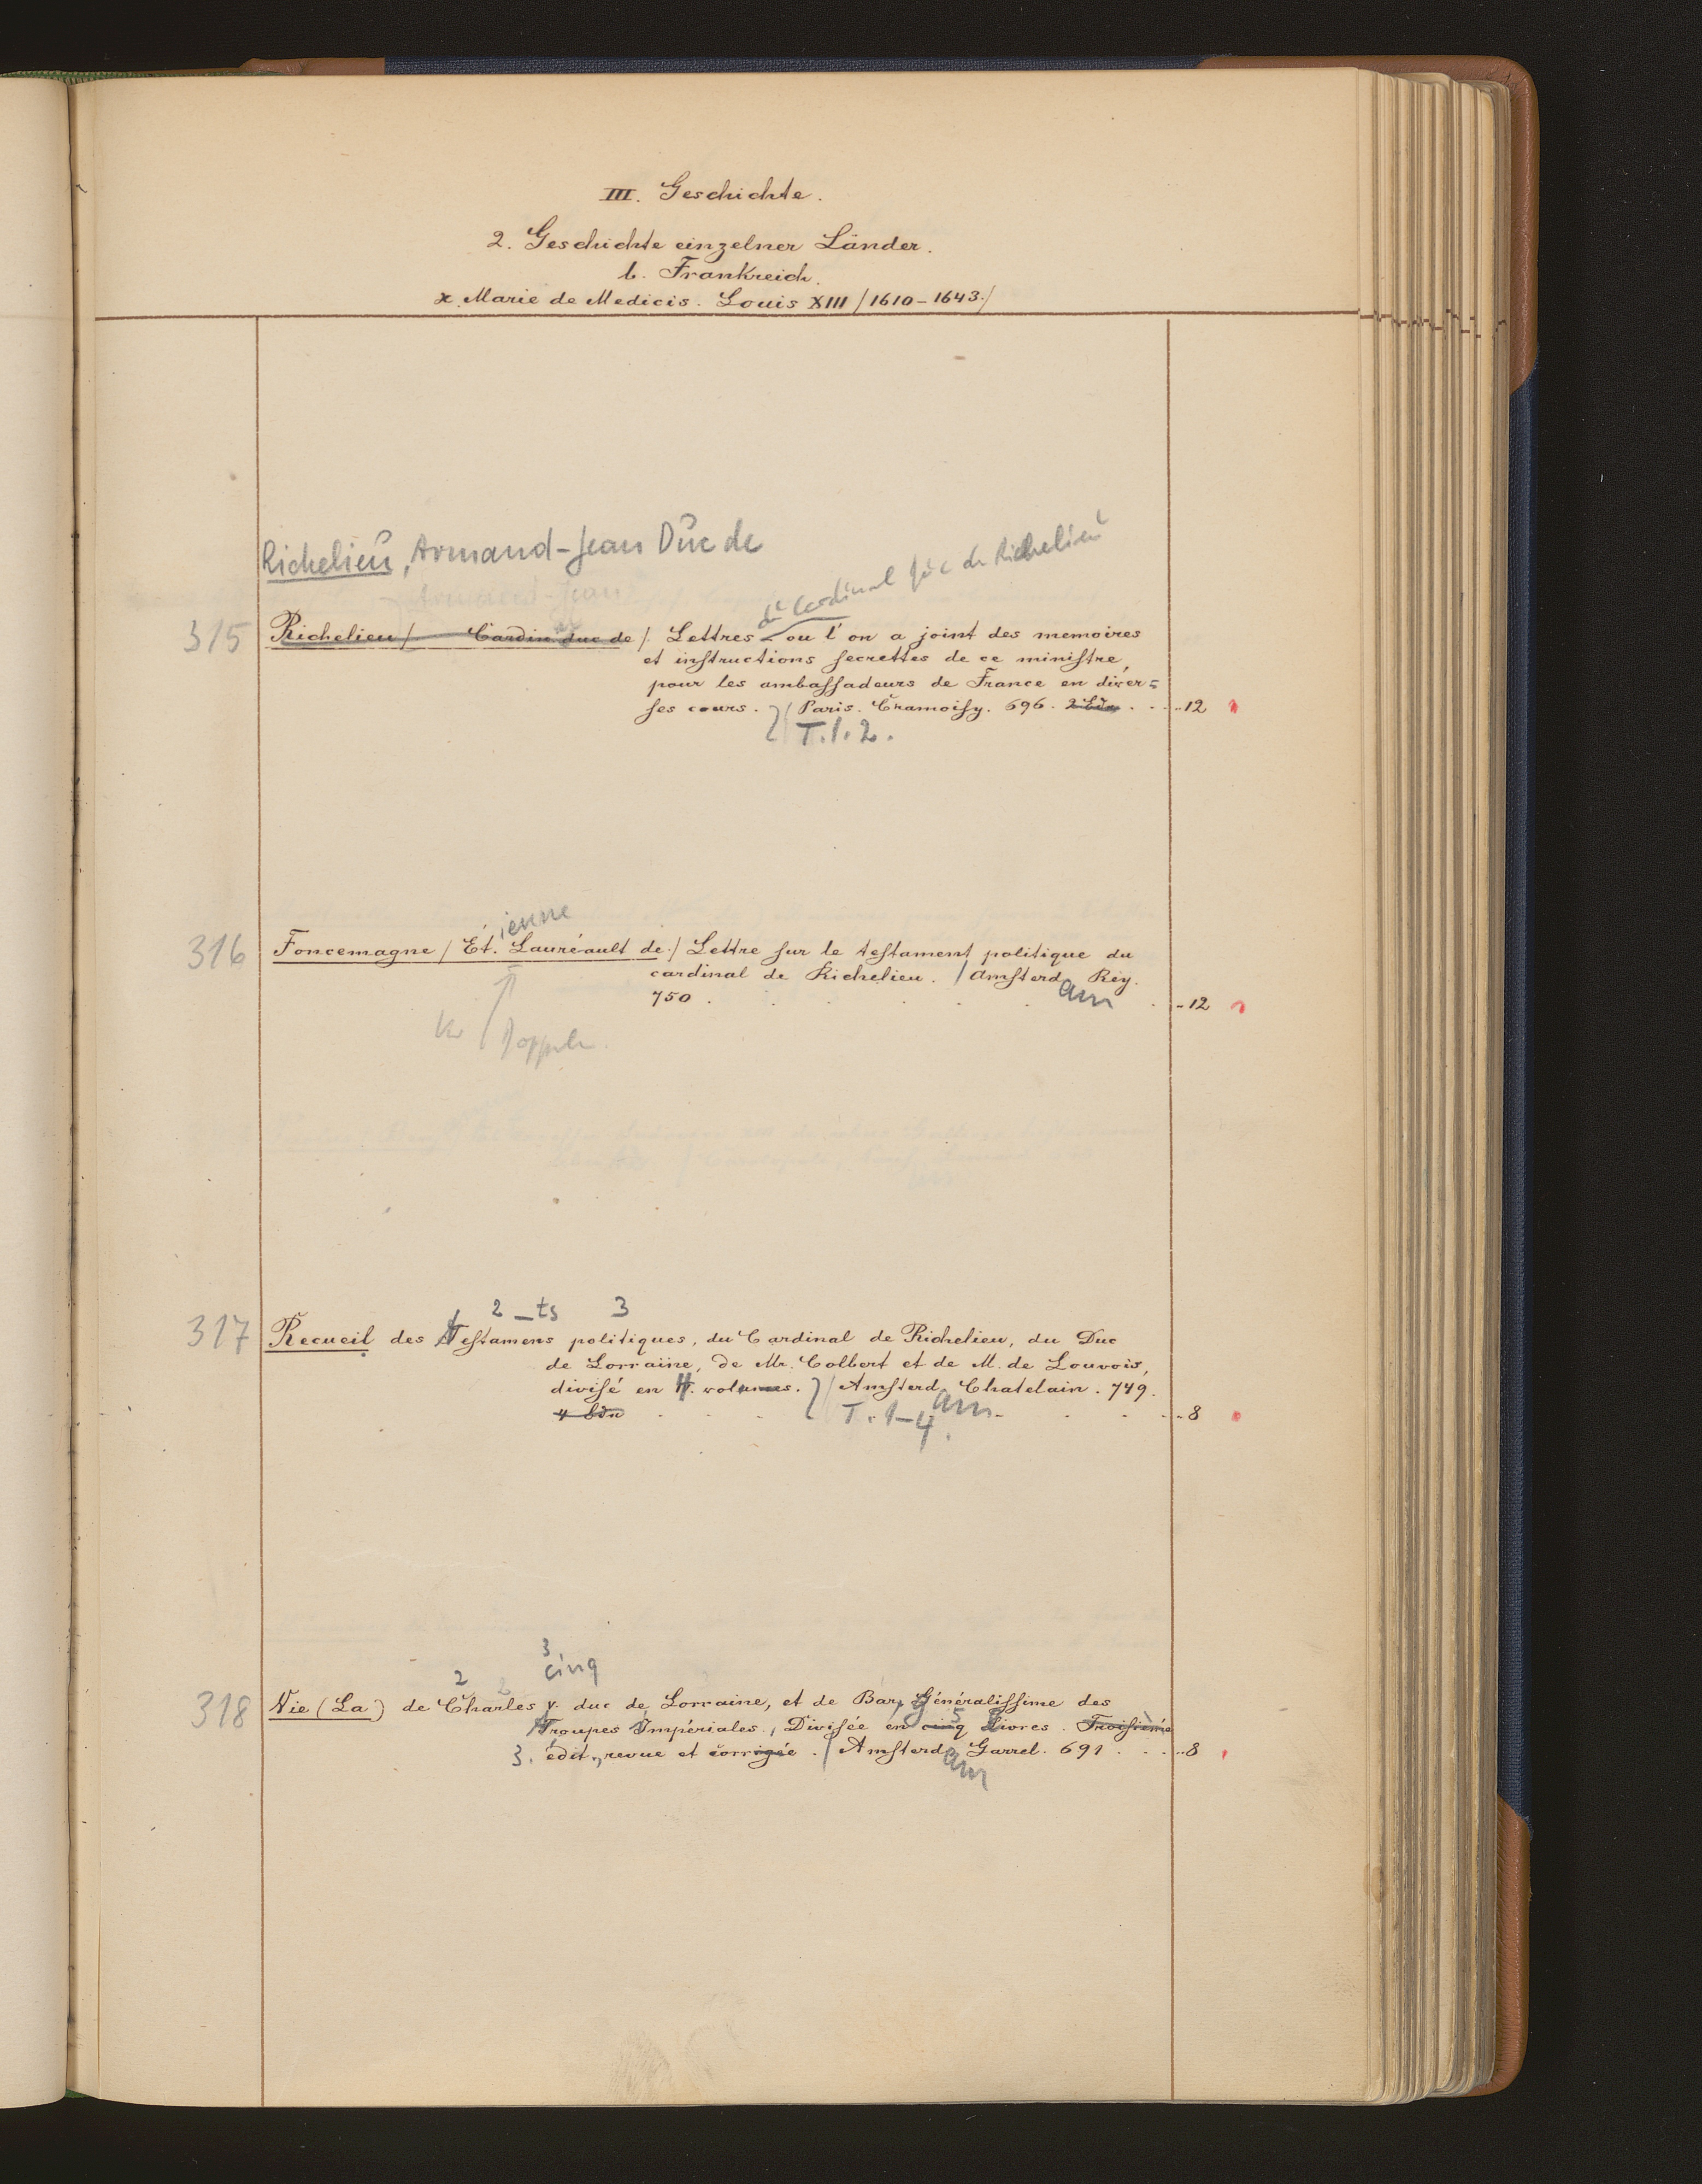 III. Geschichte.
2. Geschichte einzelner Länder.
b. Frankreich.
x. Marie de Medicis. Louis XIII /1610-1643./
Richelieu, Armand-Jean Duc de
Armand-Jean
du Cardinal Duc de Richelieu
315 Richelieu / Cardin. duc de /. Lettres ou l'on a joint des memoires
et instructions secrettes de ce ministre,
pour les ambassadeurs de France en diver=
ses cours. / Paris. Cramoisy. 696. 2 Bde . . ..12
T. 1. 2.
ienne
316 Foncemagne / Et. Lauréault de./ Lettre sur le testament politique du
cardinal de Richelieu. / Amsterd Rey.
am
750 . . . . . . ..12
Doppeln.
2 -ts 3
317 Recueil des Testamens politiques, du Cardinal de Richelieu, du Duc
de Lorraine, de Mr. Colbert et de M. de Louvois,
divisé en 4. volumes. / Amsterd. Chatelain. 749.
am
4 Bde . . . T. 1-4. . . . ..8
3
2 cinq
318 Vie (La) de Charles V. duc de Lorraine, et de Bar, Généralissime des
5
Troupes Impériales, Divisée en cinq Livres. Troisième
3. édit., revue et corrigée. / Amsterd. Garrel. 691 . . ..8
am